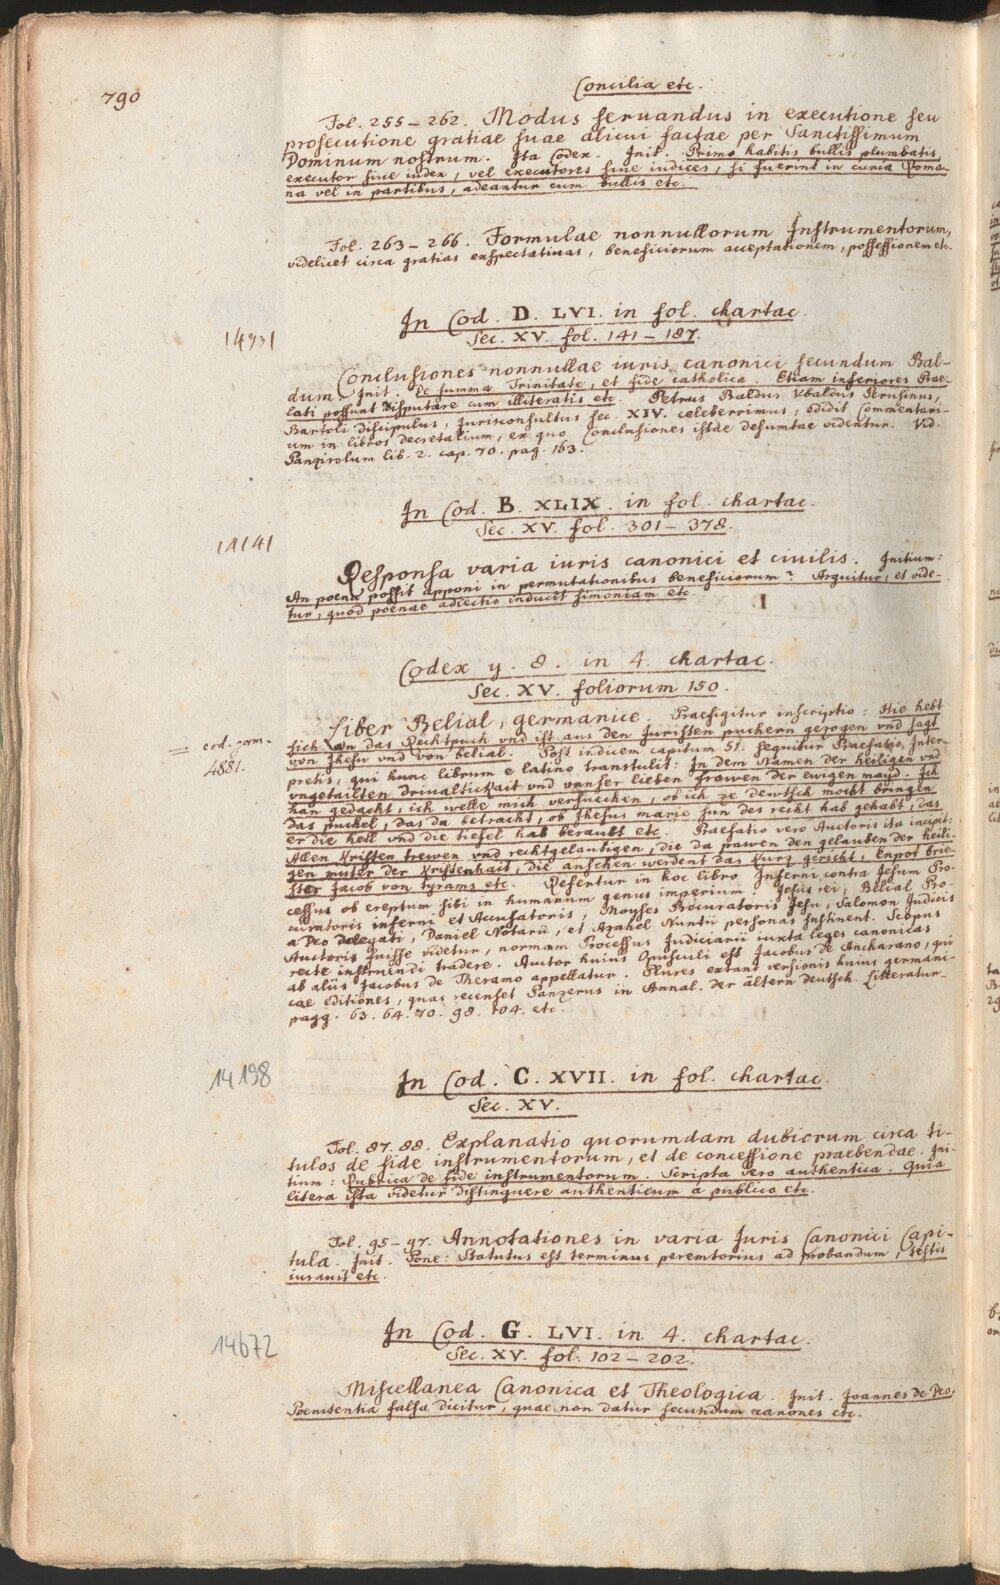 790
Concilia etc.
Fol. 255–262. Modus seruandus in executione seu
prosecutione gratiae suae alicui factae per Sanctissimum
Dominum nostrum. Ita Codex. Init. Primo habitis bullis plumbatis
executor siue iudex, vel executores siue iudices, si fuerint in curia Roma-
na vel in partibus, adeantur cum bullis etc.
Fol. 263–266. Formulae nonnullorum Instrumentorum,
videlicet circa gratias exspectatiuas, beneficiorum acceptationem, possessionem etc.
In Cod. D. LVI. in fol. chartac.
Sec. XV. fol. 141–187.
14931
Conclusiones nonnullae iuris canonici secundum Bal-
dum. Init. De summa Trinitate, et fide catholica. Etiam inferiores Prae-
lati possunt disputare cum illiteratis etc. Petrus Baldus Vbaldus Perusinus,
Bartoli Discipulus, Jurisconsultus sec. XIV. celeberrimus, edidit Commentari-
um in libros decretalium, ex quo Conclusiones istae desumtae videntur. Vid.
Panzirolum lib. 2. cap. 70. pag. 163.
In Cod. B. XLIX. in fol. chartac.
Sec. XV. fol. 301–378.
14141
Responsa varia iuris canonici et ciuilis. Initium:
An poena possit apponi in permutationibus beneficiorum? Arguitur, et vide-
tur, quod poenae adiectio inducit simoniam etc.
Codex y. 8. in 4. chartac.
Sec. XV. foliorum 150.
= cod. germ.
4881.
Liber Belial, germanice. Praefigitur inscriptio: Hie hebt
sich an das Rechtpuch vnd ist aus den Juristen puchern gezogen vnd sagt
von Jhesu vnd von belial. Post indicem capitum 51. sequitur Praefatio Inter-
pretis, qui hunc librum e latino transtulit: In dem Namen der heiligen vnd
vngetailten Driualtickait vnd vnnser lieben frawen der ewigen mayd. Ich
han gedacht, ich welle mich versuechen, ob ich ze dewtsch mocht bringen
das puchel, das da betracht, ob Jhesus marie sun des recht hab gehabt, das
er die hell vnd die tiefel hab beraubt etc. Praefatio vero Auctoris ita incipit:
Allen Kristen trewen vnd rechtgelaubigen, die da pawen den gelauben der heili-
gen muter der Kristenhait, die ansehen werdent das kurz gericht, Enpot brie-
ster Jacob von tyrams etc. Refertur in hoc libro Inferni contra Jesum Pro-
cessus ob ereptum sibi in humanum genus imperium. Jesus rei, Belial Pro-
curatoris inferni et Accusatoris, Moyses Procuratoris Jesu, Salomon Judicis
a Deo Delegati, Daniel Notarii, et Azahel Nuntii personas sustinent. Scopus
Auctoris fuisse videtur, normam Processus Judiciarii iuxta leges canonicas
recte instruendi tradere. Auctor huius Opusculi est Jacobus de Ancharano, qui
ab aliis Jacobus de Theramo appellatur. Plures extant versionis huius germani-
cae editiones, quas recenset Panzerus in Annal. der ältern deutsch. Litteratur
pagg. 63. 64. 70. 98. 104. etc.
In Cod. C. XVII. in fol. chartac.
Sec. XV.
14198
Fol. 87. 88. Explanatio quorumdam dubiorum circa ti-
tulos de fide instrumentorum, et de concessione praebendae. Ini-
tium: Rubrica de fide instrumentorum. Scripta vero authentica. Quia
litera ista videtur distinguere authenticum a publico etc.
Fol. 95–97. Annotationes in varia Juris Canonici Capi-
tula. Init. Pone: Statutus est terminus peremtorius ad probandum, testis
iurauit etc.
In Cod. G. LVI. in 4. chartac.
Sec. XV. fol. 102–202.
14672
Miscellanea Canonica et Theologica. Init. Joannes de Deo.
Poenitentia falsa dicitur, quae non datur secundum canones etc.